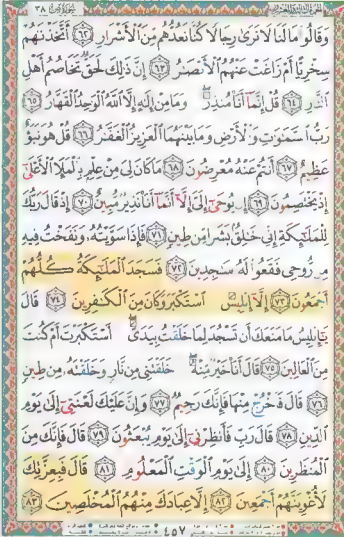 ٣٨ سورة ص الجزء الثالث والعشرون
وَقَالُوا مَا لَنَا لَا نَرَىٰ رِجَالًا كُنَّا نَعُدُّهُم مِّنَ الْأَشْرَارِ ٦٢ أَتَّخَذْنَٰهُمْ
سِخْرِيًّا أَمْ زَاغَتْ عَنْهُمُ الْأَبْصَٰرُ ٦٣ إِنَّ ذَٰلِكَ لَحَقٌّ تَخَاصُمُ أَهْلِ
النَّارِ ٦٤ قُلْ إِنَّمَا أَنَا مُنذِرٌ وَمَا مِنْ إِلَٰهٍ إِلَّا اللَّهُ الْوَٰحِدُ الْقَهَّارُ ٦٥
رَبُّ السَّمَٰوَٰتِ وَالْأَرْضِ وَمَا بَيْنَهُمَا الْعَزِيزُ الْغَفَّٰرُ ٦٦ قُلْ هُوَ نَبَؤٌا
عَظِيمٌ ٦٧ أَنتُمْ عَنْهُ مُعْرِضُونَ ٦٨ مَا كَانَ لِيَ مِنْ عِلْمٍ بِالْمَلَإِ الْأَعْلَىٰ
إِذْ يَخْتَصِمُونَ ٦٩ إِن يُوحَىٰ إِلَيَّ إِلَّا أَنَّمَا أَنَا نَذِيرٌ مُّبِينٌ ٧٠ إِذْ قَالَ رَبُّكَ
لِلْمَلَٰئِكَةِ إِنِّي خَٰلِقٌ بَشَرًا مِّن طِينٍ ٧١ فَإِذَا سَوَّيْتُهُ وَنَفَخْتُ فِيهِ
مِن رُّوحِي فَقَعُوا لَهُ سَٰجِدِينَ ٧٢ فَسَجَدَ الْمَلَٰئِكَةُ كُلُّهُمْ
أَجْمَعُونَ ٧٣ إِلَّا إِبْلِيسَ اسْتَكْبَرَ وَكَانَ مِنَ الْكَٰفِرِينَ ٧٤ قَالَ
يَٰإِبْلِيسُ مَا مَنَعَكَ أَن تَسْجُدَ لِمَا خَلَقْتُ بِيَدَيَّ أَسْتَكْبَرْتَ أَمْ كُنتَ
مِنَ الْعَالِينَ ٧٥ قَالَ أَنَا خَيْرٌ مِّنْهُ خَلَقْتَنِي مِن نَّارٍ وَخَلَقْتَهُ مِن طِينٍ
٧٦ قَالَ فَاخْرُجْ مِنْهَا فَإِنَّكَ رَجِيمٌ ٧٧ وَإِنَّ عَلَيْكَ لَعْنَتِي إِلَىٰ يَوْمِ
الدِّينِ ٧٨ قَالَ رَبِّ فَأَنظِرْنِي إِلَىٰ يَوْمِ يُبْعَثُونَ ٧٩ قَالَ فَإِنَّكَ مِنَ
الْمُنظَرِينَ ٨٠ إِلَىٰ يَوْمِ الْوَقْتِ الْمَعْلُومِ ٨١ قَالَ فَبِعِزَّتِكَ
لَأُغْوِيَنَّهُمْ أَجْمَعِينَ ٨٢ إِلَّا عِبَادَكَ مِنْهُمُ الْمُخْلَصِينَ ٨٣
٤٥٧